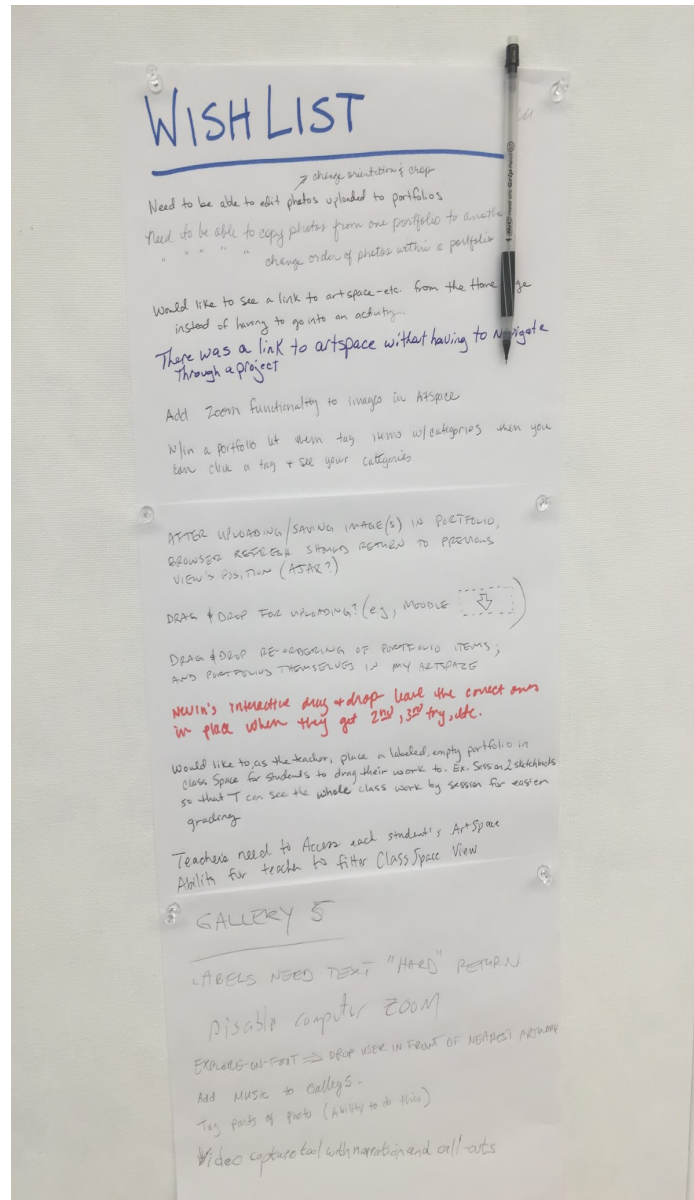 WISH LIST
→ change orientation & crop
Need to be able to edit photos uploaded to portfolios
Need to be able to copy photos from one portfolio to
" " " " " change order of photos within a portfolio
Would like to see a link to artspace-etc. from the Home
instead of having to go into an activity.
There was a link to artspace without having to Navigate
Through a project
Add Zoom functionality to images in Artspace
W/in a portfolio let them tag items w/categories then you
can click a tag + see your categories
AFTER UPLOADING/SAVING IMAGE(S) IN PORTFOLIO,
BROWSER REFRESH SHOULD RETURN TO PREVIOUS
VIEW'S POSITION (AJAX?)
DRAG & DROP FOR UPLOADING? (eg, MOODLE ⇩)
DRAG & DROP RE-ORDERING OF PORTFOLIO ITEMS;
AND PORTFOLIOS THEMSELVES IN MY ARTSPACE
Nevin's interactive drag + drop leave the correct ones
in place when they get 2nd, 3rd try, etc.
Would like to, as the teacher, place a labeled, empty portfolio in
Class Space for students to drag their work to. Ex. Session 2 sketchbooks
so that I can see the whole class work by session for easier
grading
Teachers need to Access each student's ArtSpace
Ability for teacher to filter ClassSpace View
GALLERY 5
LABELS NEED TEXT "HARD" RETURN
Disable computer ZOOM
EXPLORE-ON-FOOT ⇒ DROP USER IN FRONT OF NEAREST ARTWORK
Add MUSIC to Gallery 5.
Tag parts of photo (Ability to do this)
Video capture tool with narration and call-outs